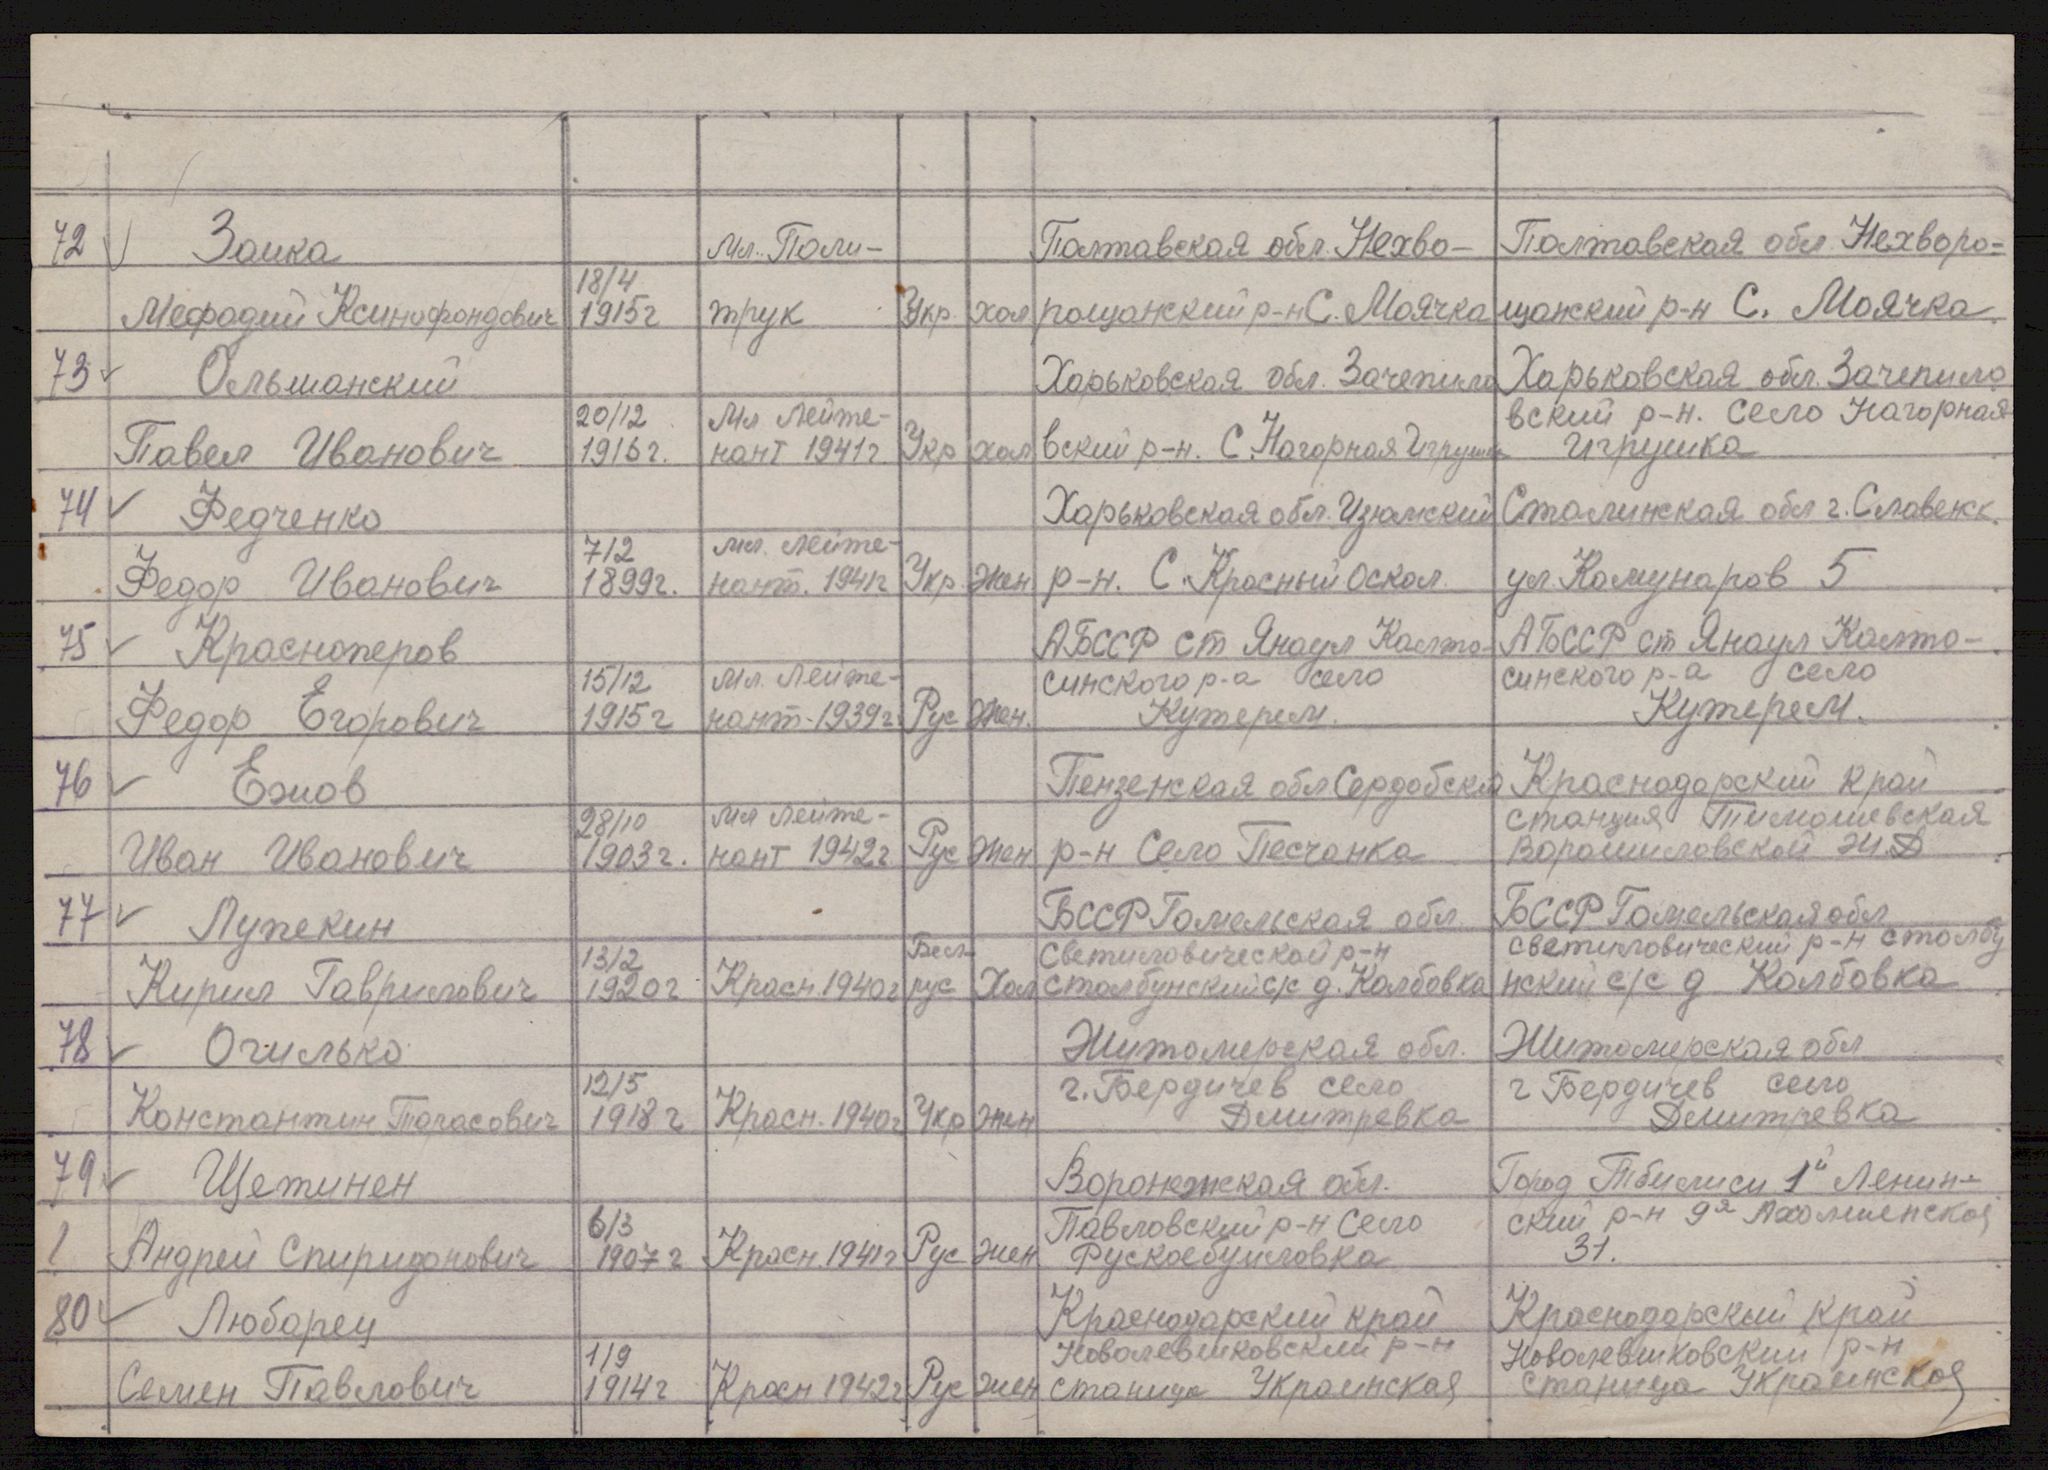 72 Заика Мл. Поли- Полтавская обл. Нехво- Полтавская обл. Нехворо-
Мефодий Ксинофондович 18/4 1915г трук Укр. хол рощанский р-н С. Маячка щанский р-н С. Маячка
73 Ольшанский Харьковская обл. Зачепило Харьковская обл. Зачепило
Павел Иванович 20/12 1916г. Мл Лейте- нант 1941г. Укр хол вский р-н. С. Нагорная Игрушка вский р-н. село Нагорная Игрушка
74 Федченко Харьковская обл. Изюмский Сталинская обл г. Славенск.
Федор Иванович 7/2 1899г. Мл. Лейте- нант. 1941г Укр. жен р-н. С. Красный Оскол. ул Комунаров 5
75 Красноперов АБССР ст Янаул Калто- АБССР ст Янаул Калто-
Федор Егорович 15/12 1915г Мл. Лейте- нант-1939г. Рус Жен. синского р-а село Кутерем. синского р-а село Кутерем.
76 Ежов Пензенская обл Сердобски Краснодарский край
Иван Иванович 28/10 1903г. Мл Лейте- нант 1942г Рус Жен р-н Село Песчанка станция Тимошевская Ворошиловской Ж.Д
77 Лупекин БССР Гомельская обл. БССР Гомельская обл
Кирил Гаврилович 13/2 1920г Красн. 1940г Бел- рус Хол Светиловической р-н столбунский с/с д. Колбовка светиловический р-н столбу нский с/с д Колбовка
78 Огилько Житомерская обл. Житомерская обл
Константин Тарасович 12/5 1918г Красн. 1940г Укр жен г. Бердичев село Дмитревка г Бердичев село Дмитревка
79 Щетинен Воронежская обл. Город Тбилиси 1й Ленин-
Андрей Спиридонович 6/3 1907г Красн. 1941г Рус жен Павловский р-н Село Рускоебуиловка ский р-н 9я 31.
80 Любарец Краснодарский край Краснодарский край
Семен Павлович 1/9 1914г Красн 1942г Рус жен Новолевшковский р-н станица Украинская Новолевшковский р-н станица Украинская